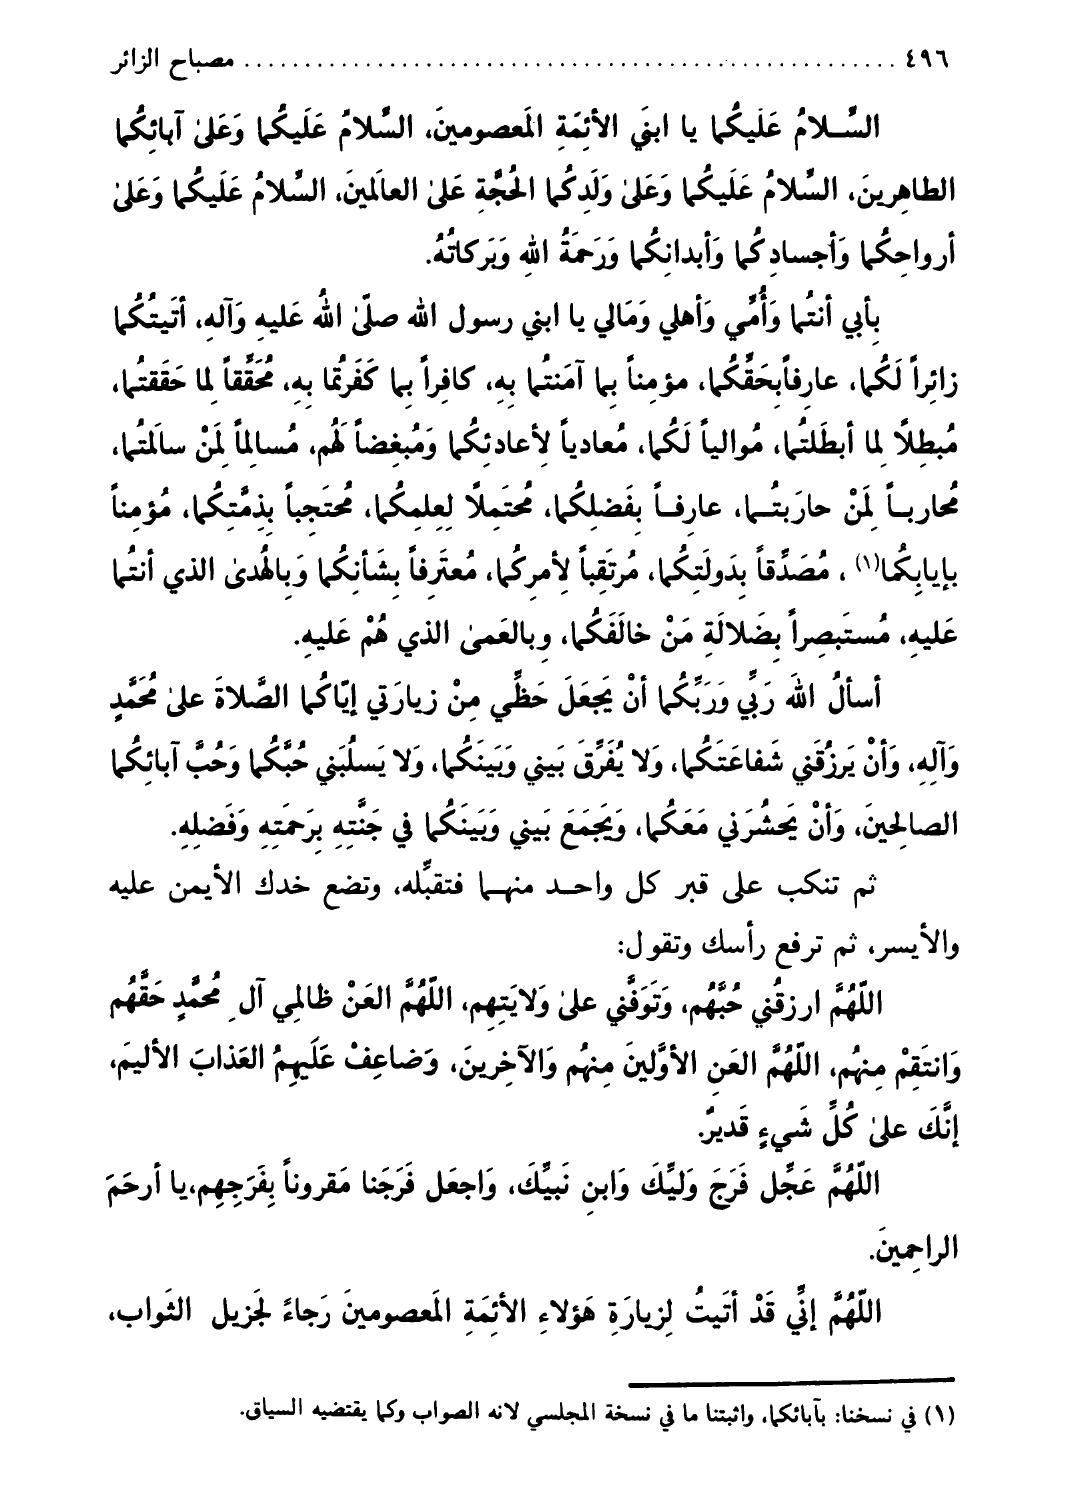 ٤٩٦ ..................................................... مصباح الزائر
السَّلامُ عَلَيكُما يا ابنَي الأئِمَةِ المَعصومينَ، السَّلامُ عَلَيكُما وَعَلىٰ آبائِكُما
الطاهِرينَ، السَّلامُ عَلَيكُما وَعَلىٰ وَلَدِكُما الحُجَّةِ عَلىٰ العالَمينَ، السَّلامُ عَلَيكُما وَعَلىٰ
أرواحِكُما وَأجسادِكُما وَأبدانِكُما وَرَحمَةُ اللهِ وَبَركاتُهُ.
بِأبي أنتُما وَأُمّي وَأهلي وَمَالي يا ابني رسول الله صلّىٰ اللهُ عَليهِ وَآلهِ، أتَيتُكُما
زائِراً لَكُما، عارِفاًبِحَقِّكُما، مؤمِناً بِما آمَنتُما بِهِ، كافِراً بِما كَفَرتُمَا بِهِ، مُحَقِّقاً لِما حَقَقتُما،
مُبطِلاً لِما أبطَلتُما، مُوالياً لَكُما، مُعادياً لأعادئِكُما وَمُبغِضاً لَهُم، مُسالِماً لِمَنْ سالَمتُما،
مُحارباً لِمَنْ حارَبتُما، عارِفاً بِفَضلِكُما، مُحتَمِلاً لِعِلمِكُما، مُحتَجِباً بِذِمَّتِكُما، مُؤمِناً
بِإيابِكُما(١)، مُصَدِّقاً بِدَولَتِكُما، مُرتَقِباً لأمرِكُما، مُعتَرِفاً بِشَأنِكُما وَبِالهُدىٰ الذي أنتُما
عَليهِ، مُستَبصِراً بِضَلالَةِ مَنْ خالَفَكُما، وبِالعَمىٰ الذي هُمْ عَليهِ.
أسألُ اللهَ رَبِّي وَرَبِّكُما أنْ يَجعَلَ حَظِّي مِنْ زيارَتي إيّاكُما الصَّلاةَ علىٰ مُحَمَّدٍ
وَآلِهِ، وَأنْ يَرزُقَني شَفاعَتَكُما، وَلا يُفَرِّقَ بَيني وَبَينَكُما، وَلا يَسلُبَني حُبَّكُما وَحُبَّ آبائِكُما
الصالِحينَ، وَأنْ يَحشُرَني مَعَكُما، وَيَجمَعَ بَيني وَبَينَكُما في جَنَّتِهِ بِرَحمَتِهِ وَفَضلِهِ.
ثم تنكب على قبر كل واحد منهما فتقبِّله، وتضع خدك الأيمن عليه
والأيسر، ثم ترفع رأسك وتقول:
اللّهُمَّ ارزقُني حُبَّهُم، وَتَوَفَّني علىٰ وَلايَتِهِم، اللّهُمَّ العَنْ ظالِمِي آل مُحمَّدٍ حَقَّهُم
وَانتَقِمْ مِنهُم، اللّهُمَّ العَنِ الأوَّلينَ مِنهُم وَالآخِرينَ، وَضاعِفْ عَلَيهِمُ العَذابَ الأليمَ،
إنَّكَ علىٰ كُلِّ شَيءٍ قَديرٌ.
اللّهُمَّ عَجِّل فَرَجَ وَليِّكَ وَابنِ نَبيِّكَ، وَاجعَل فَرَجَنا مَقروناً بِفَرَجِهِم،يا أرحَمَ
الراحِمينَ.
اللّهُمَّ إنِّي قَدْ أتَيتُ لِزيارَةِ هَؤلاءِ الأئِمَةِ المَعصومينَ رَجاءً لجَزيل الثَواب،
(١) في نسخنا: بآبائكما، واثبتنا ما في نسخة المجلسي لانه الصواب وكما يقتضيه السياق.